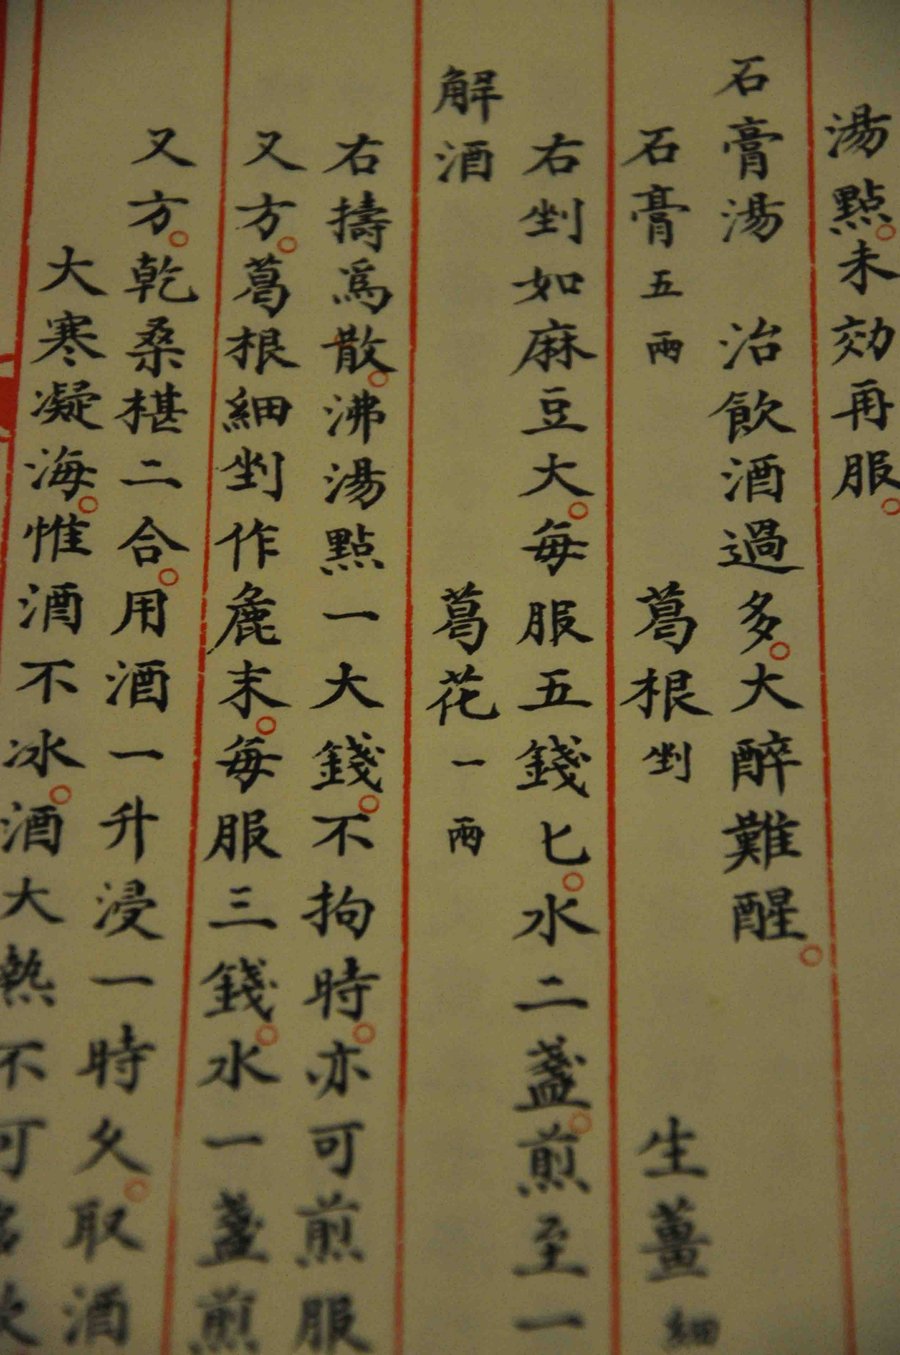 湯點。未効再服。
石膏湯 治飲酒過多。大醉難醒。
石膏五兩 葛根剉 生薑細
右剉如麻豆大。每服五錢匕。水二盞。煎至一
解酒 葛花一兩
右擣爲散。沸湯點一大錢。不拘時。亦可煎服
又方。葛根細剉作麁末。每服三錢。水一盞煎
又方。乾桑椹二合。用酒一升浸一時久。取酒
大寒凝海。惟酒不冰。酒大熱不可